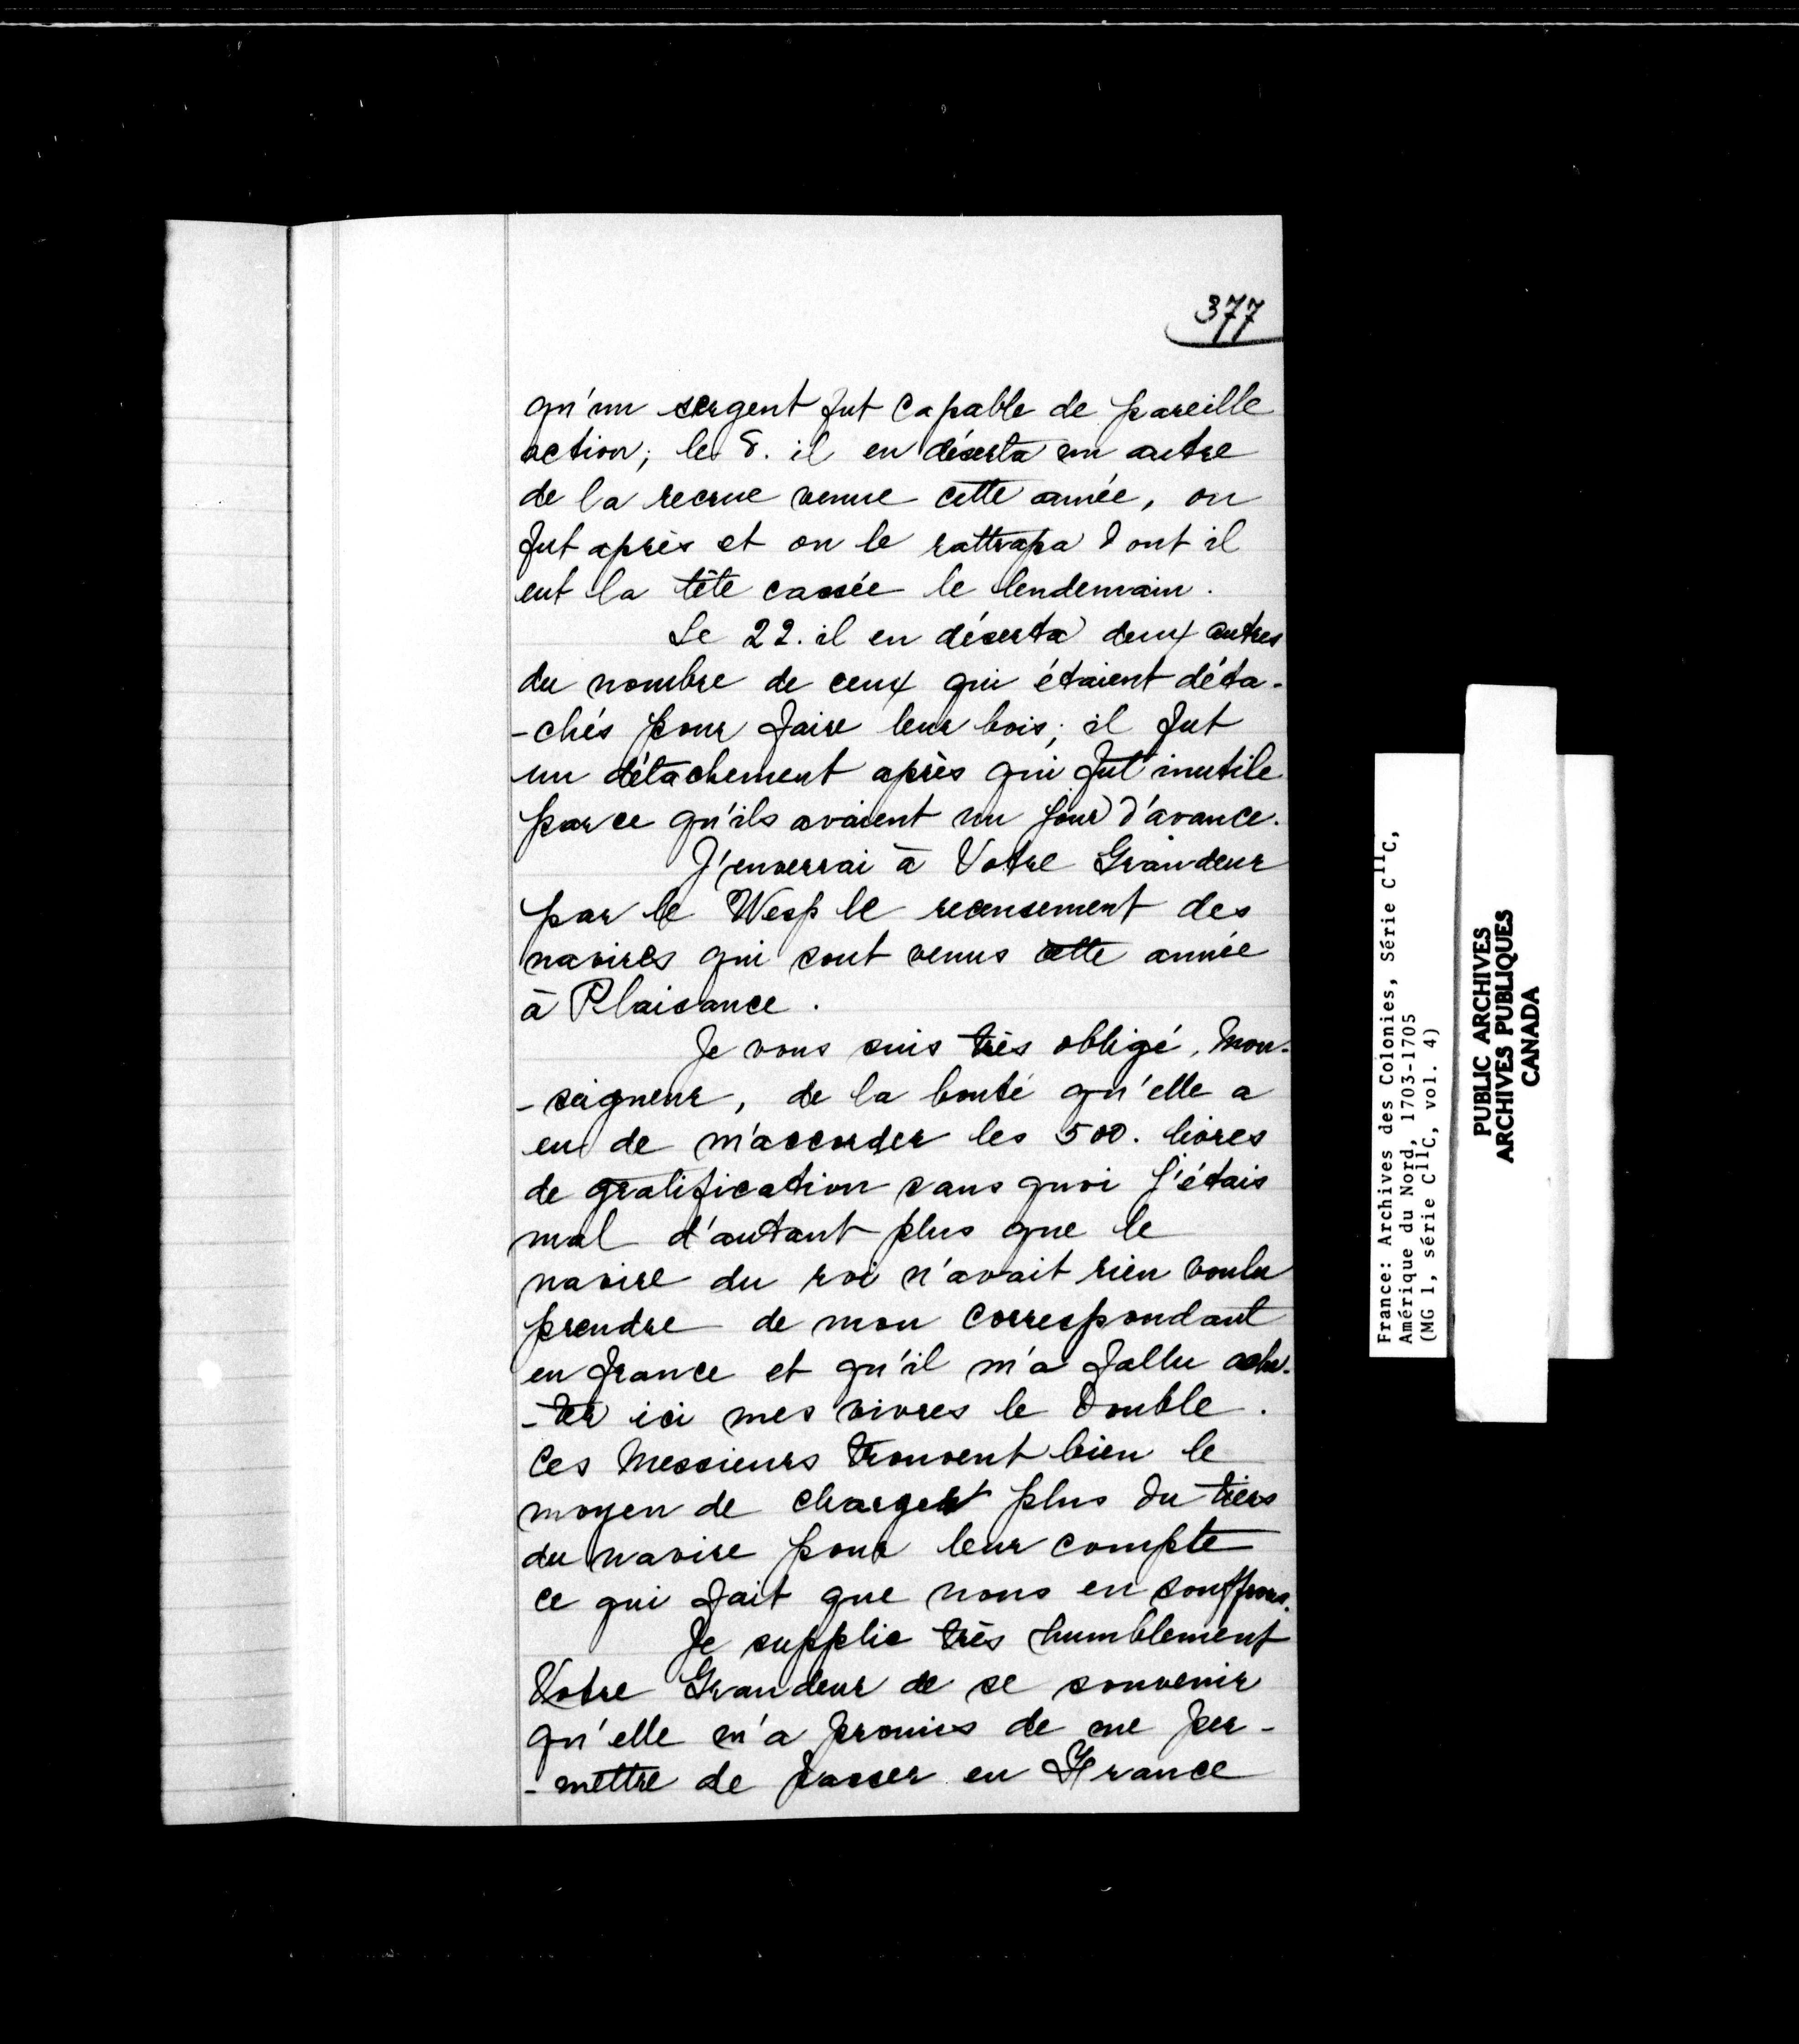 377
qu'un sergent fut capable de pareille
action; le 8. il en déserta un autre
de la recrue venue cette année, on
fut après et on le rattrapa dont il
eut la tête cassée le lendemain.
Le 22. il en déserta deux autres
du nombre de ceux qui étaient déta-
-chés pour faire leur bois; il fut
un détachement après qui fut inutile
parce qu'ils avaient un jour d'avance.
J'enverrai à Votre Grandeur
par le Wesp le recensement des
navires qui sont venus cette année
à Plaisance.
Je vous suis très obligé, Mon-
-seigneur, de la bonté qu'elle a
eu de m'accorder les 500. livres
de gratification sans quoi j'étais
mal d'autant plus que le
navire du roi n'avait rien voulu
prendre de mon correspondant
en france et qu'il m'a fallu ache-
-ter ici mes vivres le double.
Ces Messieurs trouvent bien le
moyen de charger plus du tiers
du navire pour leur compte
ce qui fait que nous en souffrons.
Je supplie très humblement
Votre Grandeur de se souvenir
qu'elle m'a promis de me per-
-mettre de passer en France
France: Archives des Colonies, série C11C,
Amérique du Nord, 1703-1705
(MG 1, série C11C, vol. 4)
PUBLIC ARCHIVES
ARCHIVES PUBLIQUES
CANADA